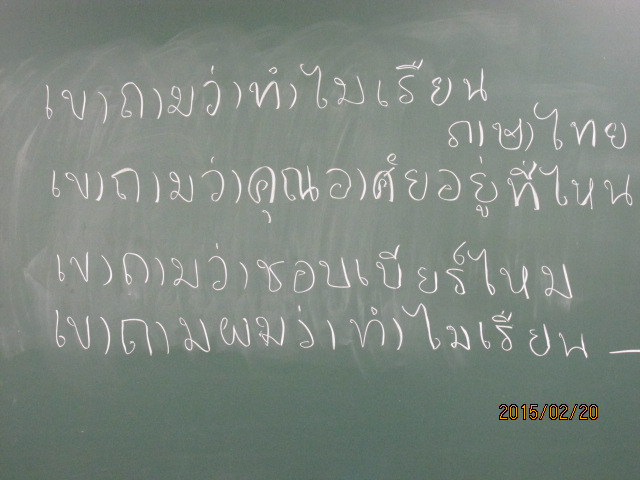 เขาถามว่าทำไมเรียน
ภาษาไทย
เขาถามว่าคุณอาศัยอยู่ที่ไหน
เขาถามว่าชอบเบียร์ไหม
เขาถามผมว่าทำไมเรียน —
2015/02/20